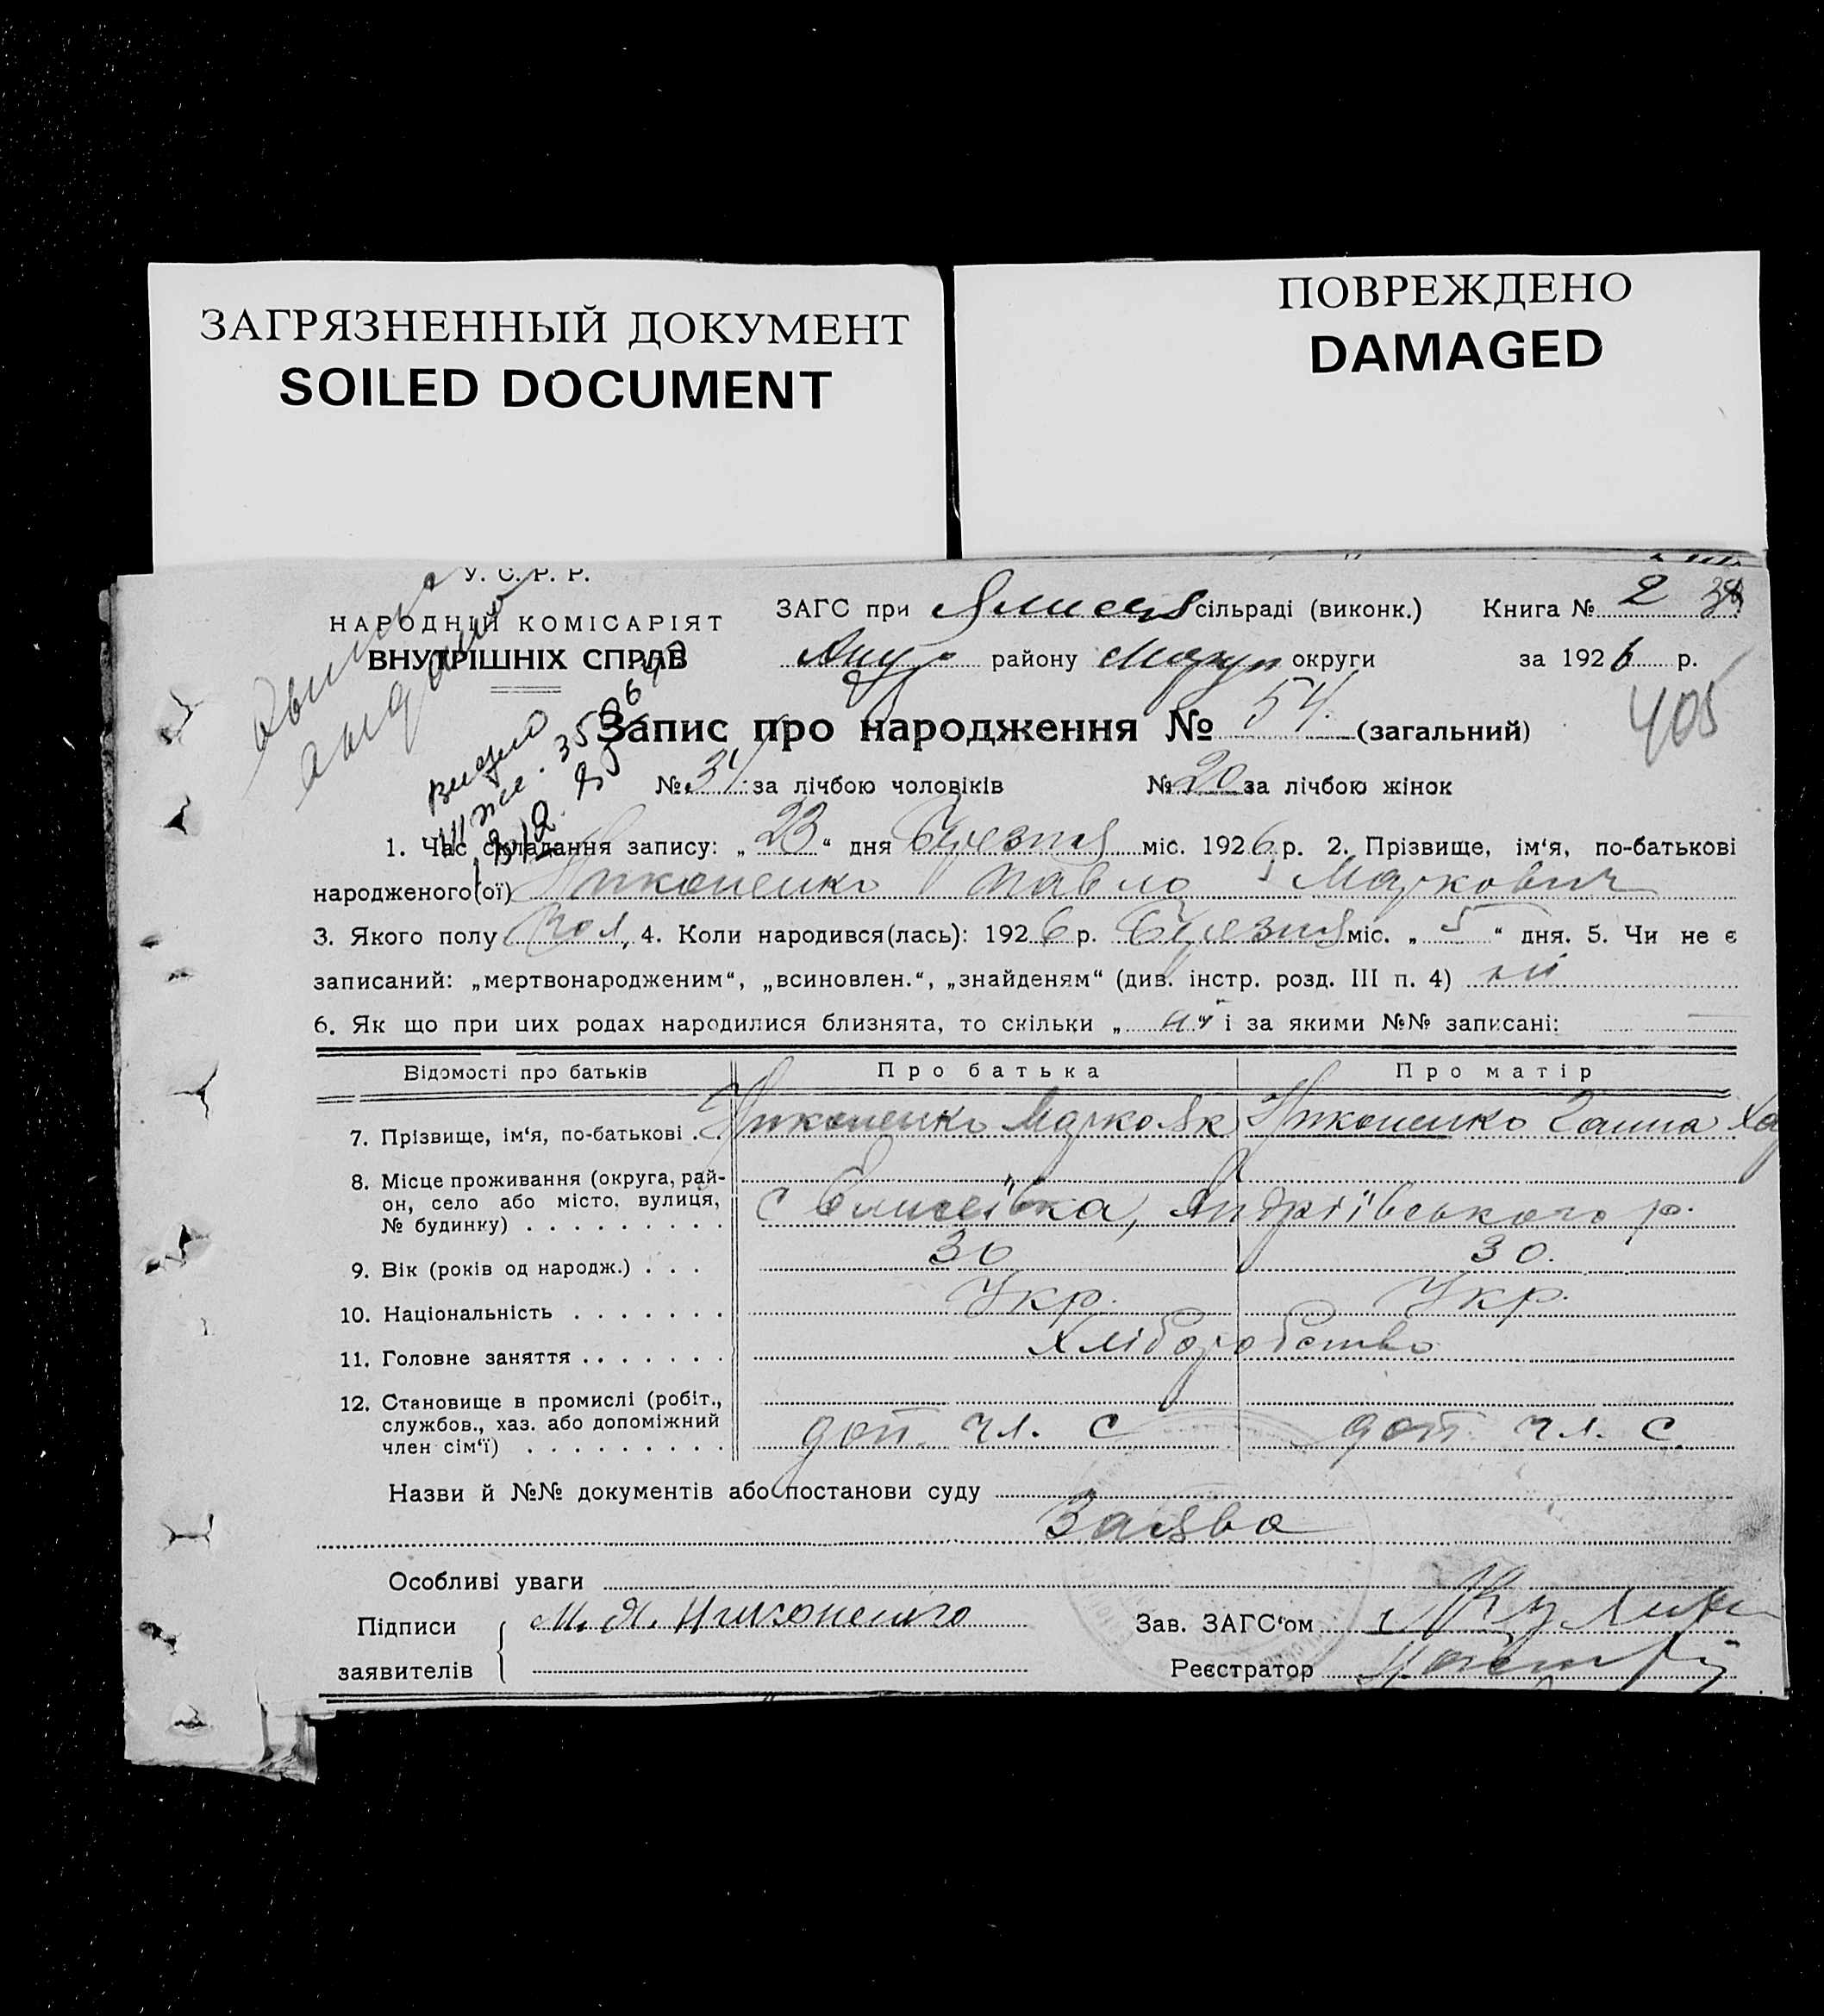 ЗАГРЯЗНЕННЫЙ ДОКУМЕНТ
SOILED DOCUMENT
ПОВРЕЖДЕНО
DAMAGED
У. С. Р. Р.
НАРОДНІЙ КОМІСАРІЯТ
ВНУТРІШНІХ СПРАВ
ЗАГС при сільраді (виконк.) Книга № 2
району округи за 1926 р.
405
Запис про народження № 54. (загальний)
№ 34 за лічбою чоловіків № 20 за лічбою жінок
1. Час складання запису: „23“ дня Березня міс. 1926 р. 2. Прізвище, ім‘я, по-батькові
народженого(ої) Никоненко Павло Маркович
3. Якого полу чол, 4. Коли народився(лась): 1926 р. Березня міс. „5“ дня. 5. Чи не є
записаний: „мертвонародженим“, „всиновлен.“, „знайденям“ (див. інстр. розд. III п. 4) ні
6. Як що при цих родах народилися близнята, то скільки „ і за якими №№ записані:
Відомості про батьків Про батька Про матір
7. Прізвище, ім‘я, по-батькові . . Никоненко Марко Як Никоненко Ганна Ха
8. Місце проживання (округа, рай-
он, село або місто, вулиця,
№ будинку) . . . . . . . . . с Єлисеївка, Андріївського р.
9. Вік (років од народж.) . . . 30 30.
10. Національність . . . . . . . Укр. Укр.
11. Головне заняття . . . . . . . Хліборобство
12. Становище в промислі (робіт.,
службов., хаз. або допоміжний
член сім‘ї) . . . . . . . . . доп. чл. с доп. чл. с.
Назви й №№ документів або постанови суду
Заява
Особливі уваги
Підписи
заявителів
М. Я. Никоненко
Зав. ЗАГС‘ом
Реєстратор